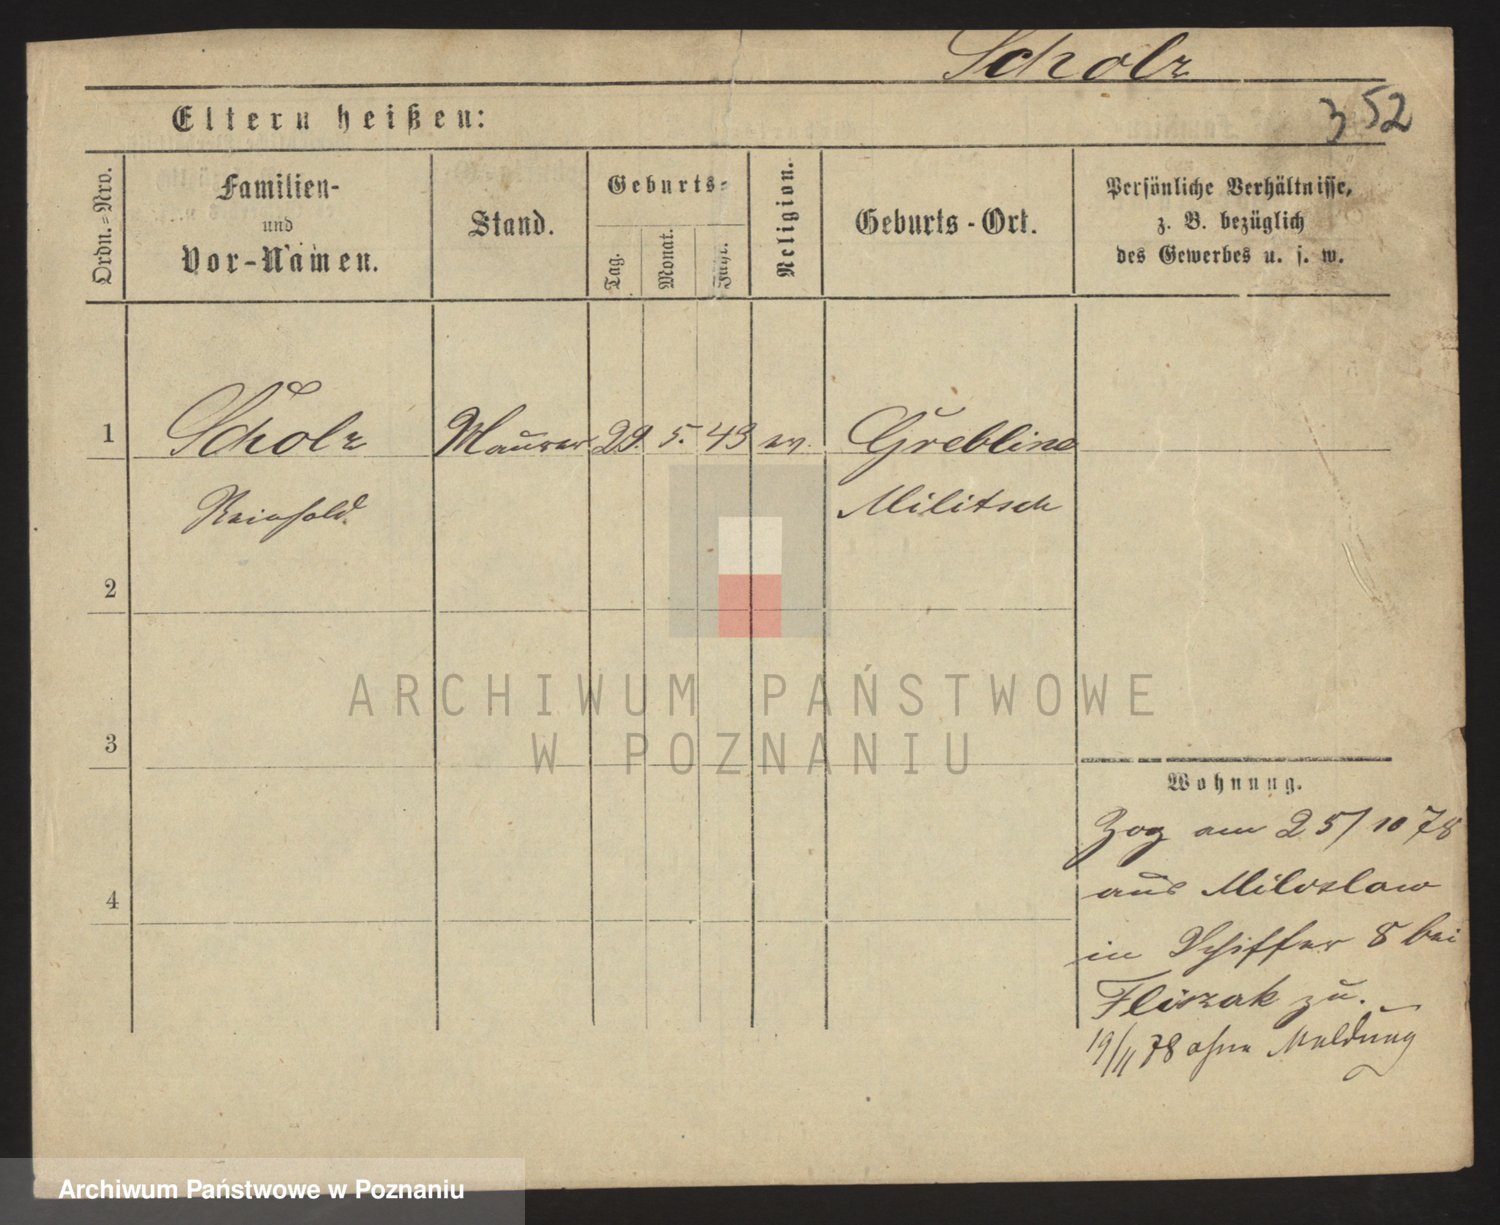 Scholz
Eltern heißen:
352
Ordn.-Nro.
Familien-
und
Vor-Namen.
Stand.
Geburts-
Tag.
Monat.
Jahr.
Religion.
Geburts-Ort.
Persönliche Verhältnisse,
z. B. bezüglich
des Gewerbes u. s. w.
1
Scholz
Maurer
29.
5.
43
ev.
Grebline
Reinhold
Militsch
2
3
4
ARCHIWUM PAŃSTWOWE
W POZNANIU
Wohnung.
Zog am 25/10 78
aus Miloslaw
in Schiffer 8 bei
Fliszak zu.
19/11 78 ohne Meldung
Archiwum Państwowe w Poznaniu